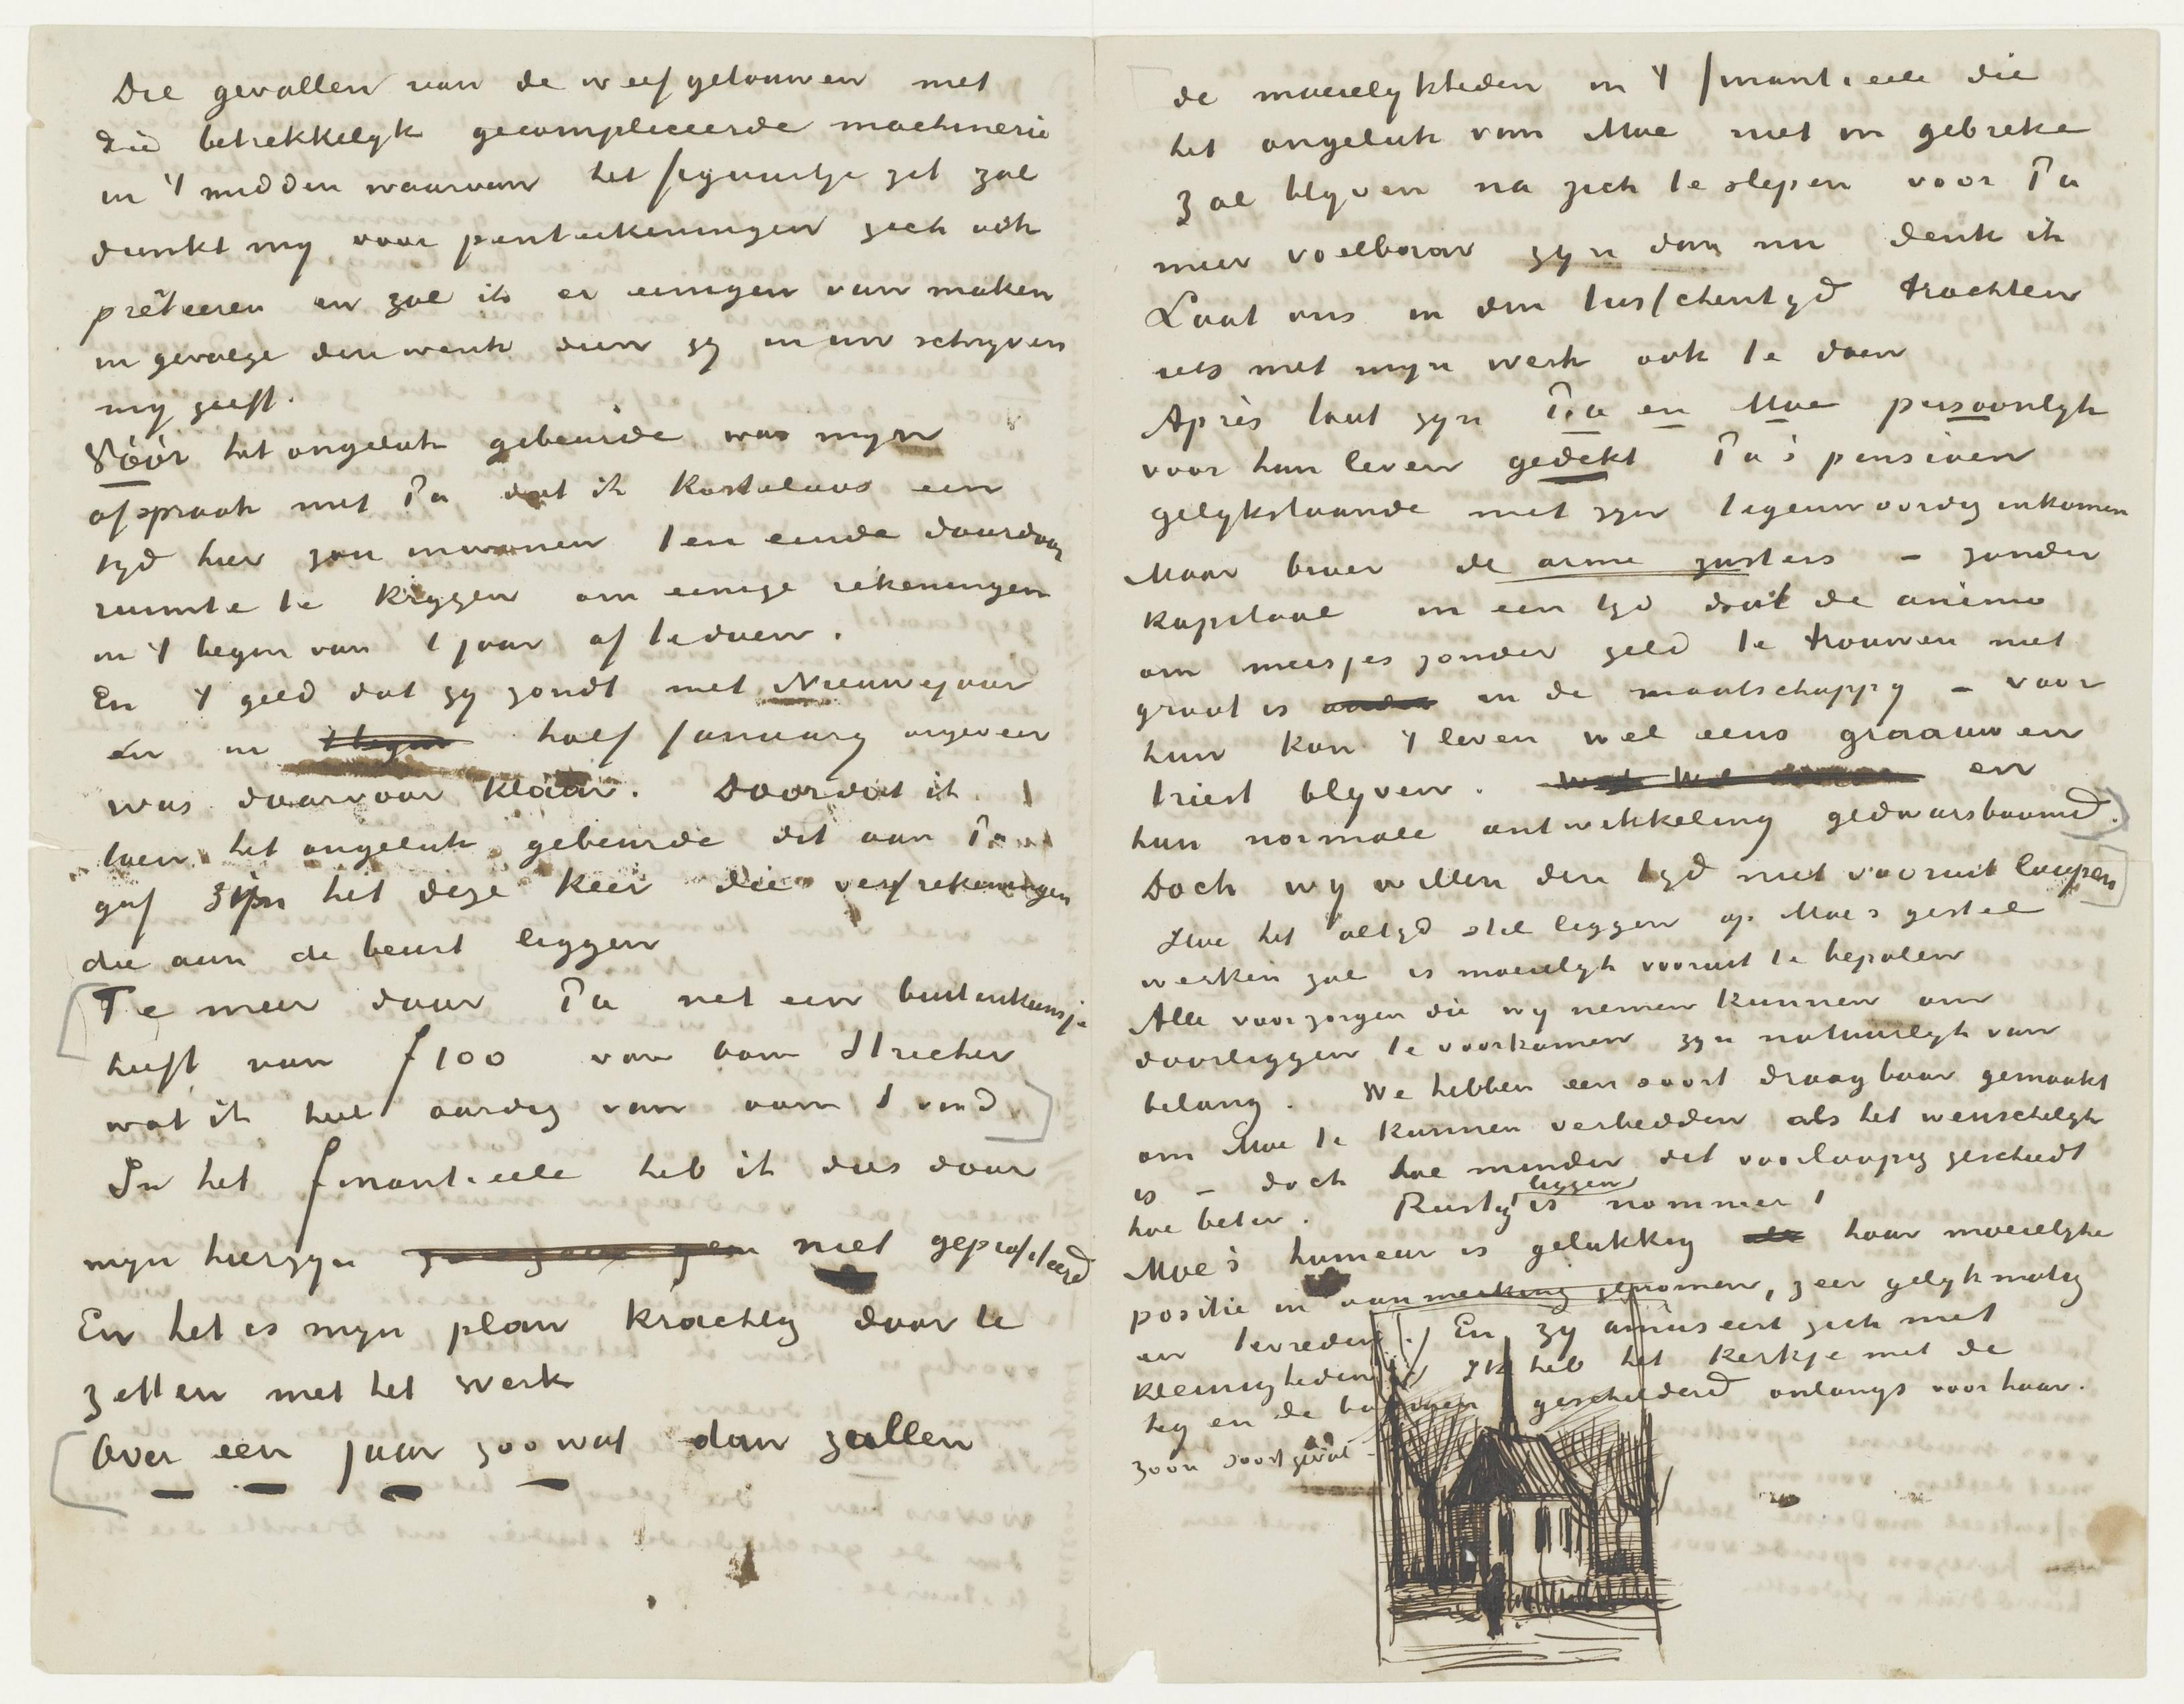 Die gevallen van de weefgetouwen met
die betrekkelyk gecompliceerde machinerie
in ’t midden waarvan het figuurtje zit zal
dunkt my voor penteekeningen zich ook
prêteeren en zal ik er eenigen van maken
ingevolge den wenk dien gy in uw schryven
my geeft.
Vóór het ongeluk gebeurde was myn
afspraak met Pa dat ik kosteloos een
tyd hier zou inwonen ten einde daardoor
ruimte te krygen om eenige rekeningen
in ’t begin van ’t jaar af te doen.
En ’t geld dat gy zondt met Nieuwejaar
én in half January ongeveer
was daarvoor klaar. Doordat ik
toen het ongeluk gebeurde dit aan Pa
gaf zyn het deze keer die verfrekeningen
die aan de beurt liggen
Te meer daar Pa net een buitenkansje
heeft van f 100 van oom Stricker
wat ik heel aardig van oom S vind
In het finantieele heb ik dus door
myn hierzyn niet geprofiteerd
En het is myn plan krachtig door te
zetten met het werk
Over een jaar zoowat dan zullen
de moeielykheden in ’t finantieele die
het ongeluk van Moe niet in gebreke
zal blyven na zich te slepen voor Pa
meer voelbaar zyn dan nu denk ik
Laat ons in den tusschentyd trachten
iets met myn werk ook te doen
Après tout zyn Pa en Moe persoonlyk
voor hun leven gedekt Pa’s pensioen
gelykstaande met zyn tegenwoordig inkomen
Maar broer de arme zusters – zonder
kapitaal in een tyd dat de animo
om meisjes zonder geld te trouwen niet
groot is in de maatschappy – voor
hun kan ’t leven wel eens graauw en
triest blyven. en
hun normale ontwikkeling gedwarsboomd.
Doch wy willen den tyd niet vooruit loopen
Hoe het altyd stil liggen op Moe’s gestel
werken zal is moeielyk vooruit te bepalen
Alle voorzorgen die wy nemen kunnen om
doorliggen te voorkomen zyn natuurlyk van
belang. We hebben een soort draagbaar gemaakt
om Moe te kunnen verbedden als het wenschelyk
is – doch hoe minder dit voorloopig geschiedt
hoe beter. Rustig liggen is nommer 1
Moe’s humeur is gelukkig haar moeielyke
positie in aanmerking genomen, zeer gelykmatig
en tevreden. En zy amuseert zich met
kleinigheden. Ik heb het kerkje met de
heg en de boomen geschilderd onlangs voor haar.
zoon soort geval –